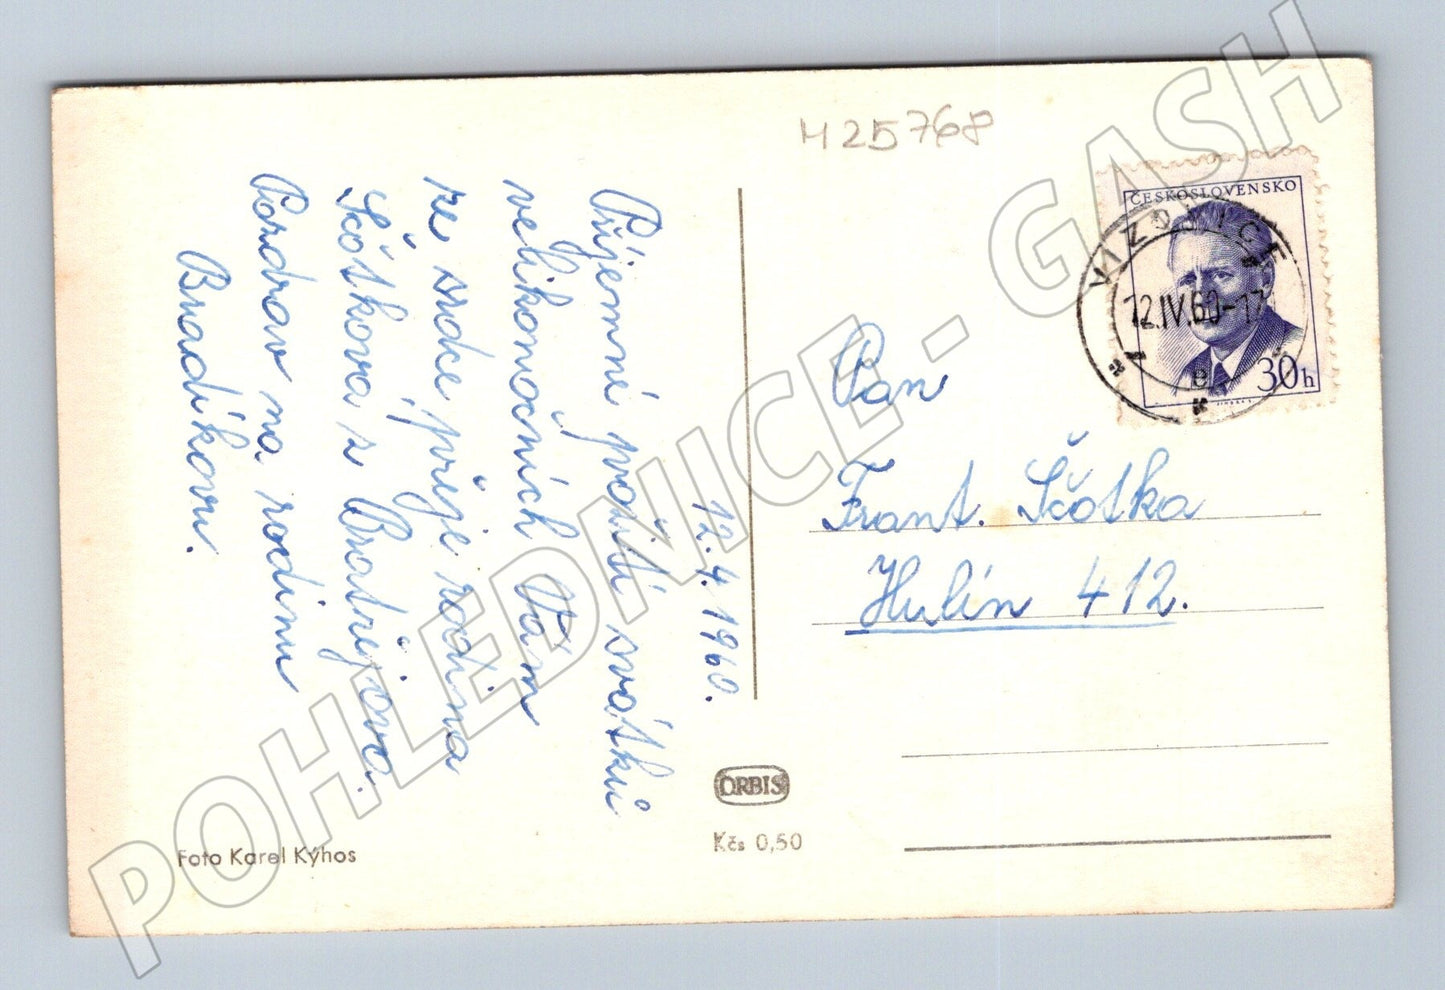 H25768
ČESKOSLOVENSKO
VIZOVICE
12.IV.60-17
30h
12.4.1960.
Příjemné prožití svátků
velikonočních Vám
ze srdce přeje rodina
Ščotkova z Bratřejova.
Pozdrav na rodinu
Bradíkovu.
Pan
Frant. Ščotka
Hulín 412.
ORBIS
Kčs 0,50
Foto Karel Kýhos
POHLEDNICE - GASH